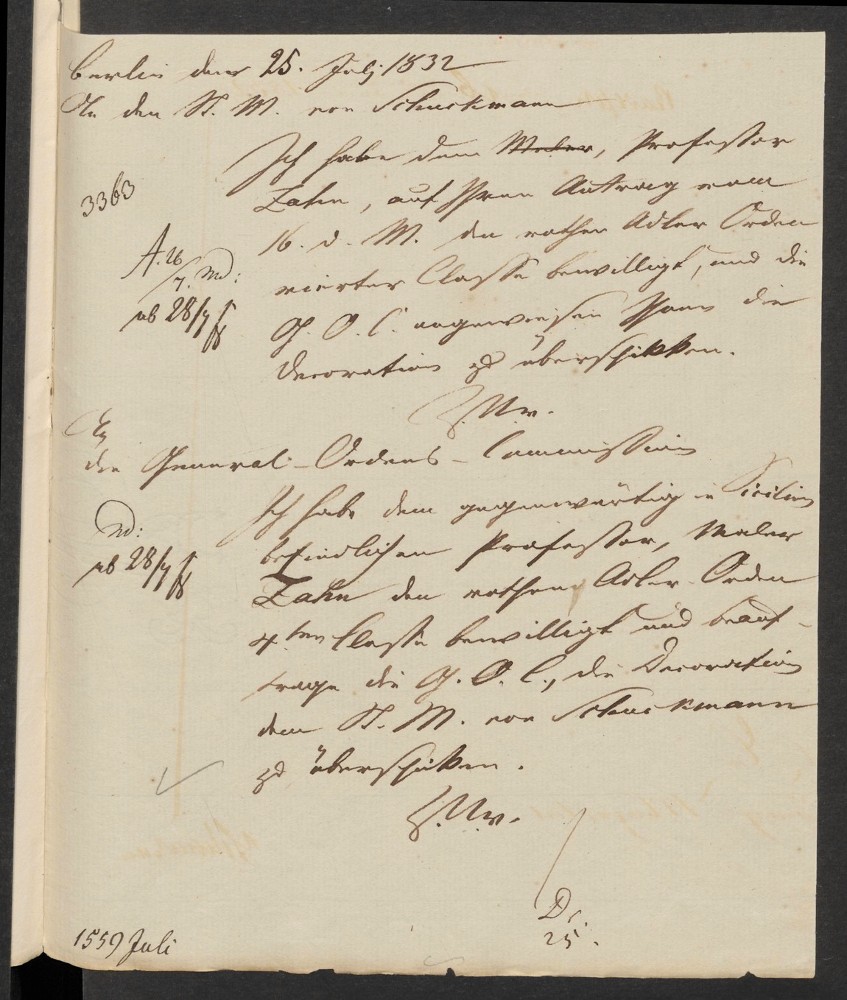 Berlin den 25. July 1832
An den St. M. von Schuckmann
Ich habe dem Maler, Professor
Zahn, auf Ihren Antrag vom
3363
16. d. M. den rothen Adler Orden
A. 26/7. Md:
vierter Classe bewilligt, und die
ab 28/7
G. O. C. angewiesen Ihnen die
Decoration zu überschikken.
An
die General-Ordens-Commission
Ich habe dem gegenwärtig in Sicilien
Md:
befindlichen Professor, Maler
ab 28/7
Zahn den rothen Adler-Orden
4ten Classe bewilligt und beauf-
trage die G. O. C., die Decoration
dem St. M. von Schuckmann
zu überschicken.
D.
25.
1559 Juli